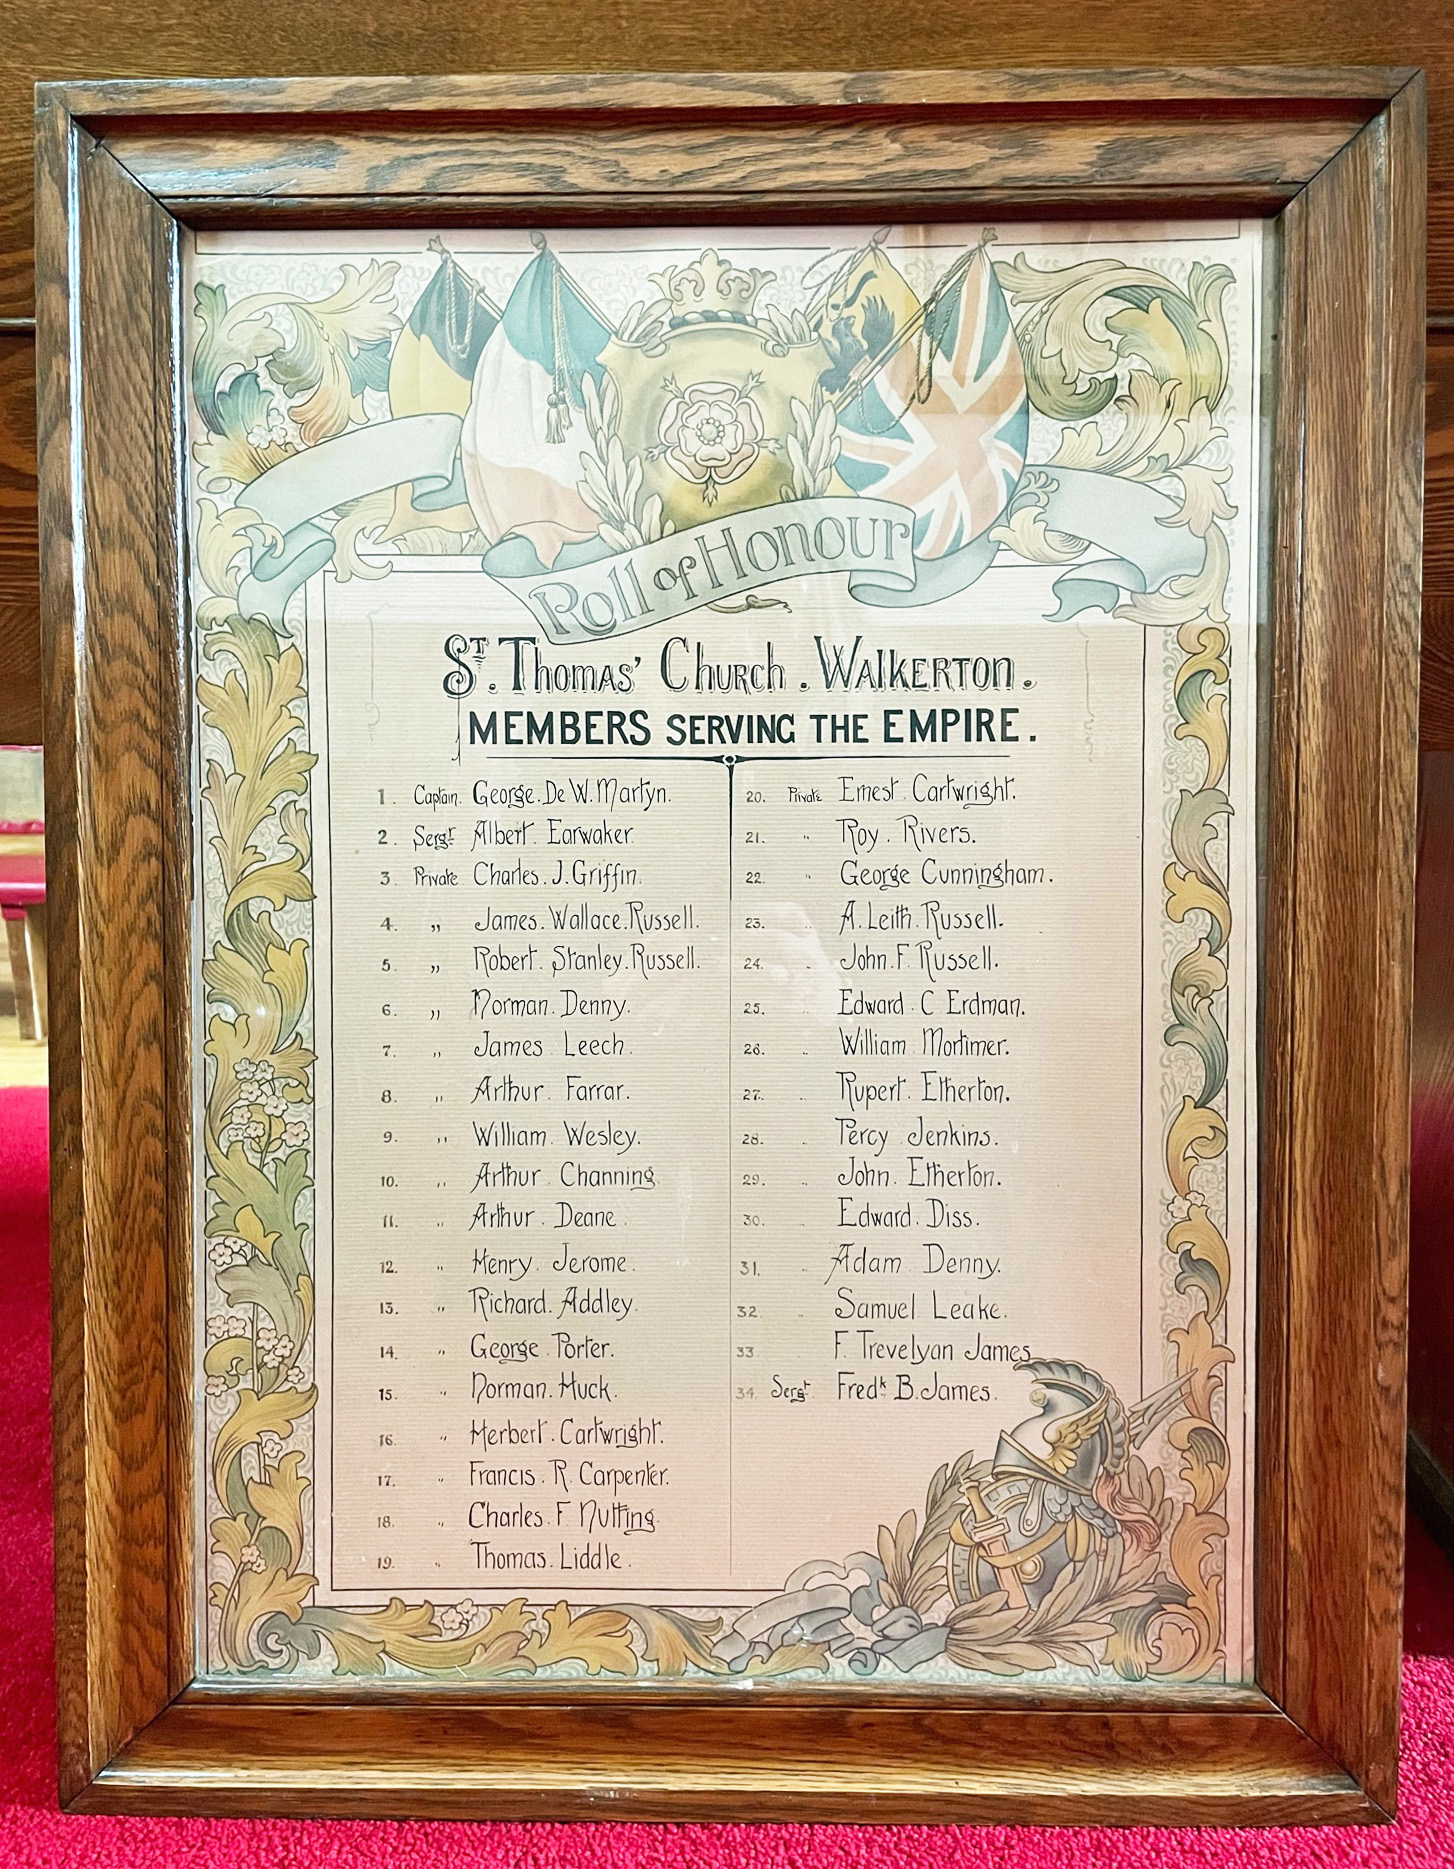 Roll of Honour
ST. THOMAS' CHURCH. WALKERTON.
MEMBERS SERVING THE EMPIRE.
1. Captain. George. De W. Martyn.
2. Sergt Albert. Earwaker.
3. Private Charles. J. Griffin.
4. " James. Wallace. Russell.
5. " Robert. Stanley. Russell.
6. " Norman. Denny.
7. " James. Leech.
8. " Arthur. Farrar.
9. " William. Wesley.
10. " Arthur. Channing.
11. " Arthur. Deane.
12. " Henry. Jerome.
13. " Richard. Addley.
14. " George. Porter.
15. " Norman. Huck.
16. " Herbert. Cartwright.
17. " Francis. R. Carpenter.
18. " Charles. F. Nutting.
19. " Thomas. Liddle.
20. Private Ernest. Cartwright.
21. " Roy. Rivers.
22. " George Cunningham.
23. " A. Leith. Russell.
24. " John. F. Russell.
25. " Edward. C Erdman.
26. " William. Mortimer.
27. " Rupert. Etherton.
28. " Percy Jenkins.
29. " John. Etherton.
30. " Edward. Diss.
31. " Adam Denny.
32 " Samuel Leake.
33 F. Trevelyan James
34. Sergt. Fredk B. James.